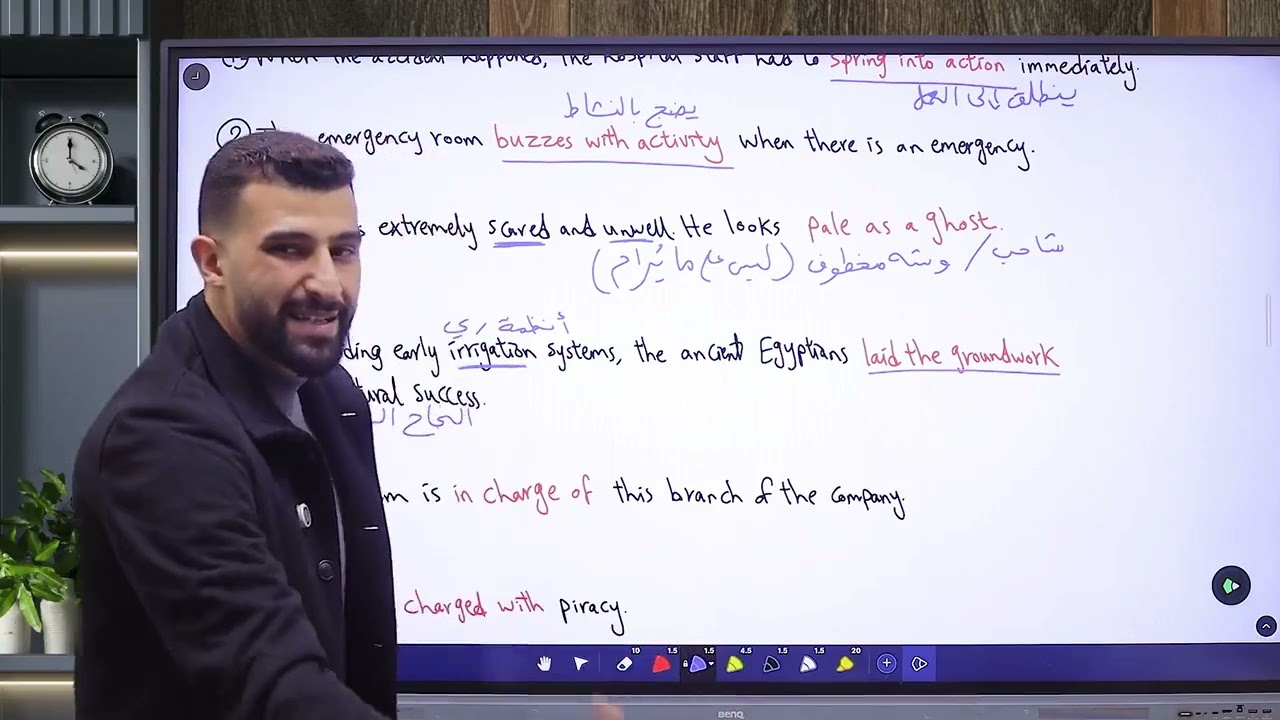 the accident happened, the hospital staff had to spring into action immediately.
ينطلق إلى العمل
يضج بالنشاط
② emergency room buzzes with activity when there is an emergency.
extremely scared and unwell. He looks pale as a ghost.
شاحب / وشه مخطوف (ليس على ما يُرام)
أنظمة ري
ding early irrigation systems, the ancient Egyptians laid the groundwork
ural success.
النجاح
m is in charge of this branch of the company.
charged with piracy.
10 1.5 1.5 4.5 1.5 1.5 20
BENQ